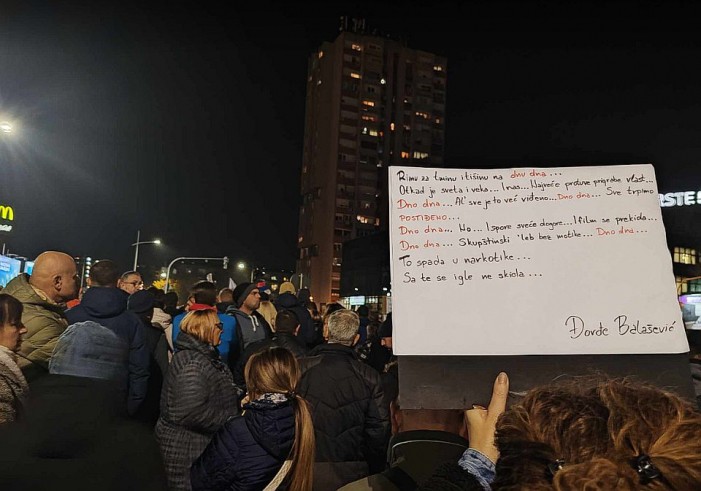 Rimu za tminu i tišinu na dnu dna...
Otkad je sveta i veka... I nas... Najveće protuve prigrabe vlast...
Dno dna... Al' sve je to već viđeno... Dno dna... Sve trpimo
POSTIĐENO...
Dno dna... No... I spore sveće dogore... I film se prekida...
Dno dna... Skupštinski 'leb bez motike... Dno dna...
To spada u narkotike...
Sa te se igle ne skida...
Đorđe Balašević
RSTE S